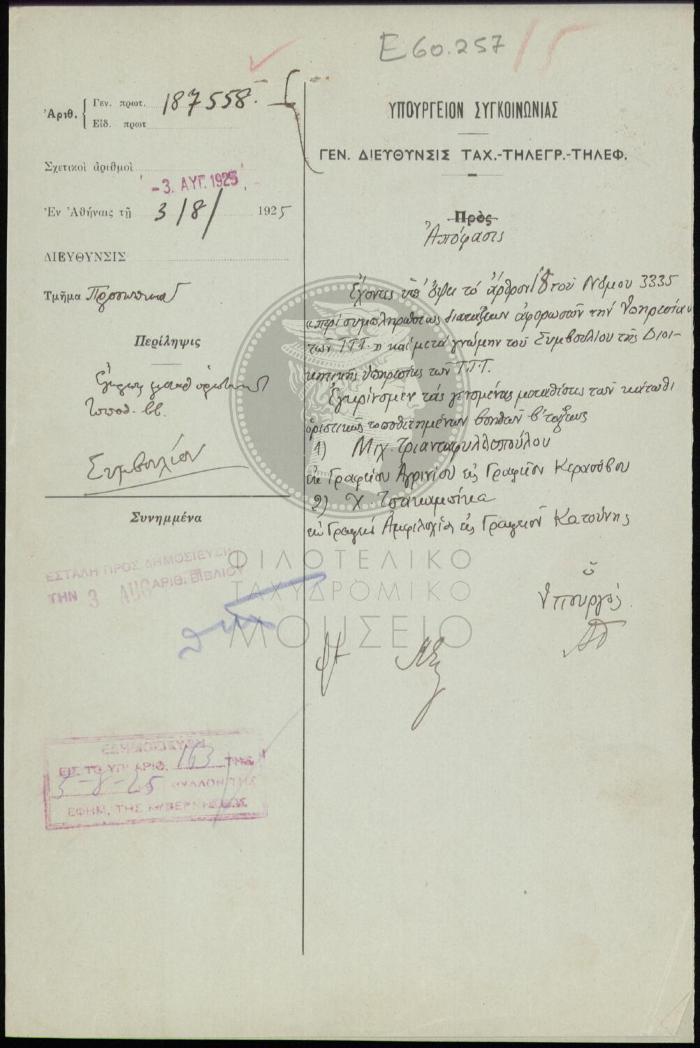 Ε60.257 /5
Ἀριθ. { Γεν. πρωτ. 187558.
Εἰδ. πρωτ
Σχετικοὶ ἀριθμοὶ
- 3. ΑΥΓ. 1925
Ἐν Ἀθήναις τῇ 3/8/ 1925
ΔΙΕΥΘΥΝΣΙΣ
Τμῆμα Προσωπικοῦ
Περίληψις
Συμβούλιον
Συνημμένα
ΕΣΤΑΛΗ ΠΡΟΣ ΔΗΜΟΣΙΕΥΣΗ
ΤΗΝ 3 AUG ΑΡΙΘ. ΒΙΒΛΙΟΥ
ΕΔΗΜΟΣΙΕΥΘΗ
ΕΙΣ ΤΟ ΥΠ' ΑΡΙΘ. 163 ΤΗΣ
5-8-25 ΦΥΛΛΟΝ ΤΗΣ
ΕΦΗΜ. ΤΗΣ ΚΥΒΕΡΝΗΣΕΩΣ
ΥΠΟΥΡΓΕΙΟΝ ΣΥΓΚΟΙΝΩΝΙΑΣ
ΓΕΝ. ΔΙΕΥΘΥΝΣΙΣ ΤΑΧ.-ΤΗΛΕΓΡ.-ΤΗΛΕΦ.
Πρὸς
Ἀπόφασις
Ἔχοντες ὑπ' ὄψει τὸ ἄρθρον 18 τοῦ Νόμου 3335
«περὶ συμπληρώσεως διατάξεων ἀφορωσῶν τὴν Ὑπηρεσίαν
τῶν Τ.Τ.Τ.» καὶ μετὰ γνώμην τοῦ Συμβουλίου τῆς Διοι-
κητικῆς Ὑπηρεσίας τῶν Τ.Τ.Τ.
Ἐγκρίνομεν τὰς γενομένας μεταθέσεις τῶν κάτωθι
ὁριστικῶς τοποθετημένων βοηθῶν β' τάξεως
1) Μιχ. Τριανταφυλλοπούλου
ἐκ Γραφείου Ἀγρινίου εἰς Γραφεῖον Κερασόβου
2) Χ. Τσακαμπίκα
ἐκ Γραφείου Ἀμφιλοχίας εἰς Γραφεῖον Κατούνης
Ὁ
Ὑπουργός
ΦΙΛΟΤΕΛΙΚΟ
ΤΑΧΥΔΡΟΜΙΚΟ
ΜΟΥΣΕΙΟ